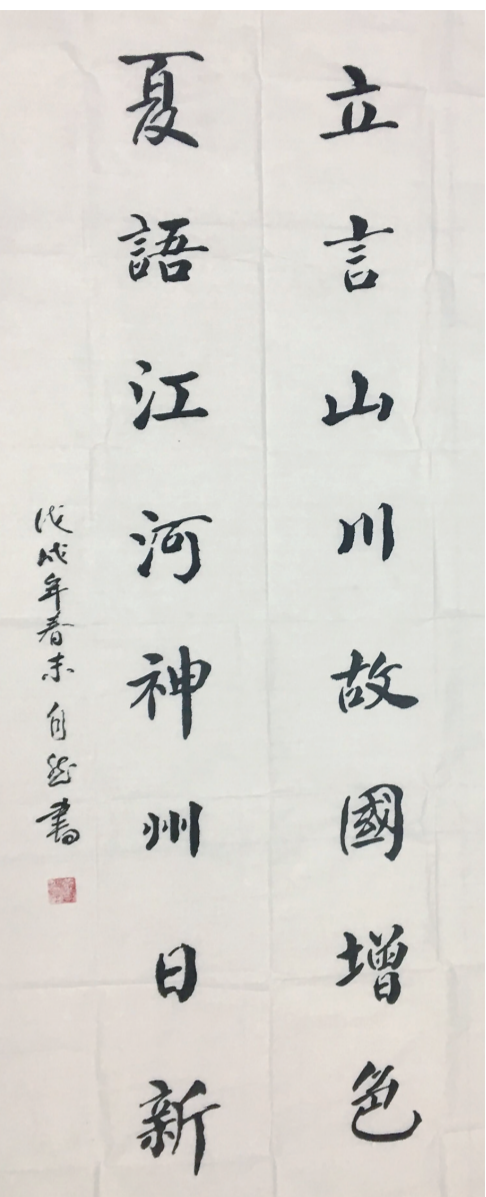 立言山川故國增色
夏語江河神州日新
戊戌年春末自然書